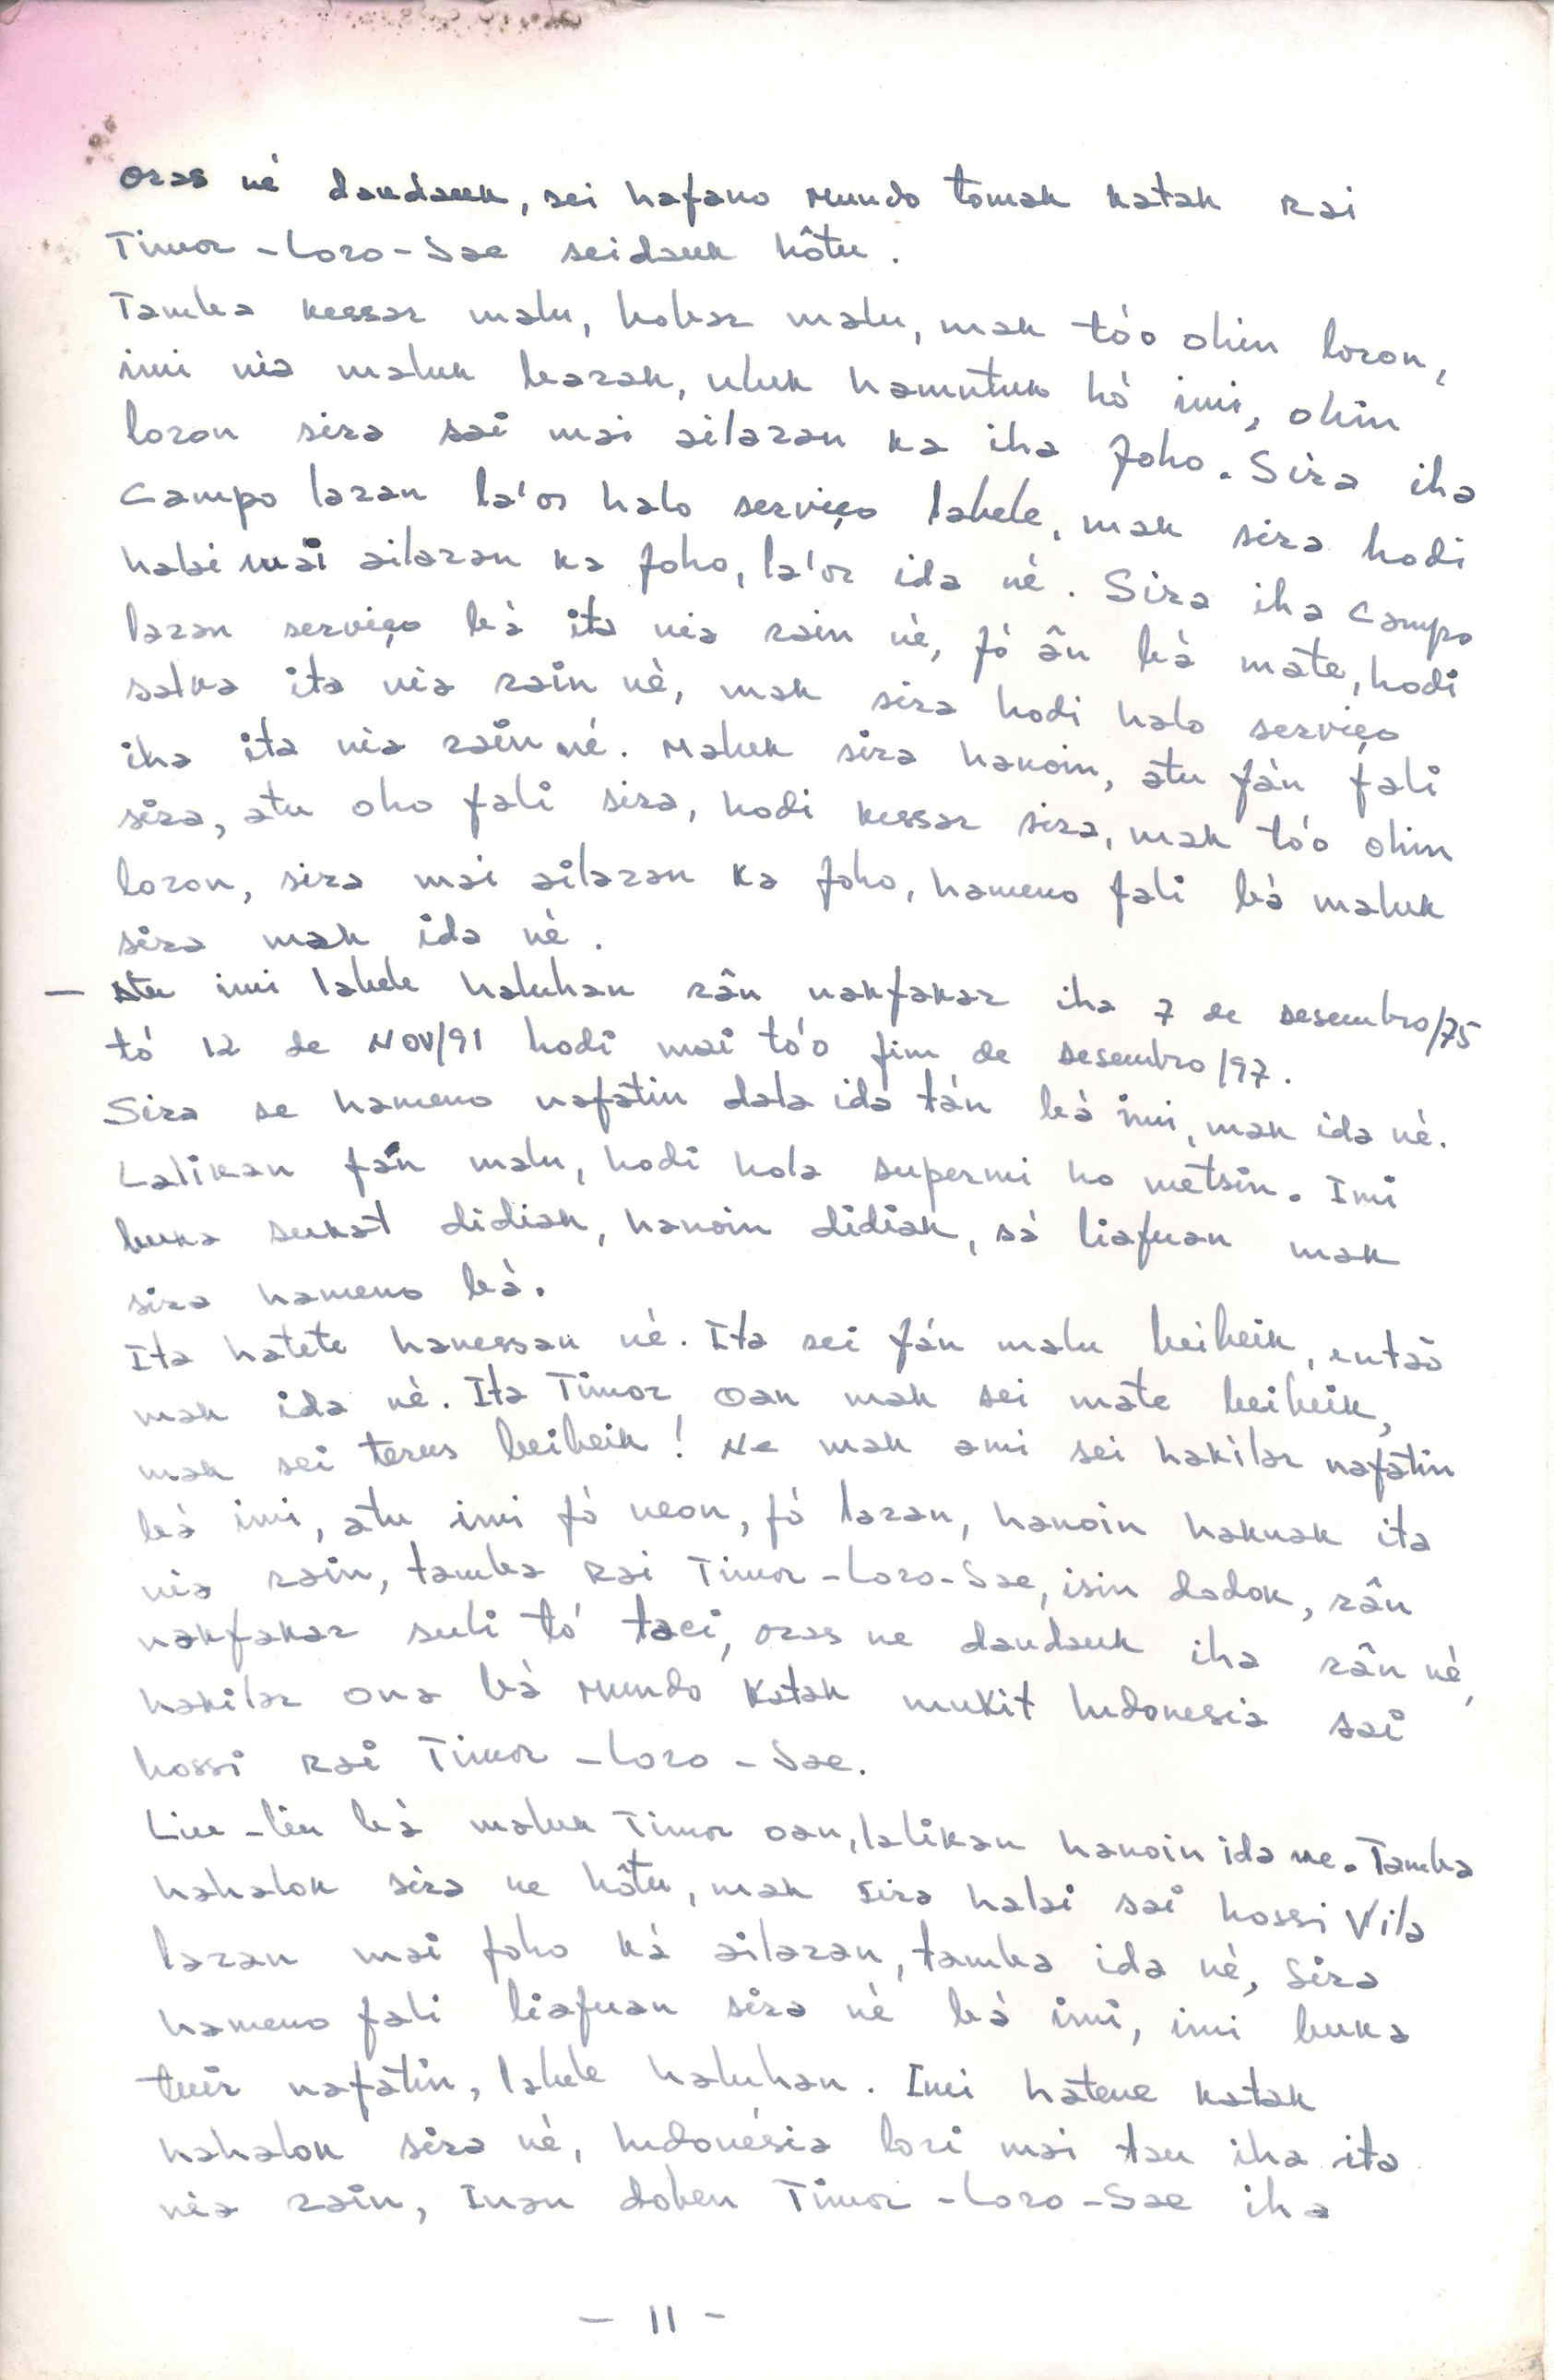 oras né daudauk, sei hafano Mundo tomak katak Rai
Timor-Loro-Sae seidauk hôtu.
Tamba kessar malu, kobar malu, mak tó'o ohin loron,
imi nia maluk barak, uluk hamutuk hó imi, ohin
loron sira sai mai ailaran ka iha foho. Sira iha
Campo laran la'os halo serviço labele, mak sira hodi
halai mai ailaran ka foho, la'os ida né. Sira iha Campo
laran serviço bá ita nia rain nè, fó ân bá mate, hodi
salva ita nia rain nè, mak sira hodi halo serviço
iha ita nia rain né. Maluk sira hanoin, atu fán fali
sira, atu oho fali sira, hodi kessar sira, mak tó'o ohin
loron, sira mai ailaran ka foho, hameno fali bá maluk
sira mak ida nè.
— Atu imi labele haluhan rân nakfakar iha 7 de desembro/75
tó 12 de NOV/91 hodi mai tó'o fim de desembro/97.
Sira se hameno nafatin dala ida tán bá imi, mak ida nè.
Lalikan fán malu, hodi hola supermi ho metsin. Imi
buka sukat didiak, hanoin didiak, sá liafuan mak
sira hameno bá.
Ita hatete hanessan né. Ita sei fán malu beibeik, então
mak ida nè. Ita Timor Oan mak sei mate beibeik,
mak sei terus beibeik! Ne mak ami sei hakilar nafatin
bá imi, atu imi fó neon, fó laran, hanoin haknak ita
nia rain, tamba Rai Timor-Loro-Sae, isin dodok, rân
nakfakar suli tó taci, oras ne daudauk iha rân nè,
hakilar ona bá Mundo katak mukit Indonesia sai
hossi Rai Timor-Loro-Sae.
Liu-liu bá maluk Timor oan, lalikan hanoin ida ne. Tamba
hahalok sira ne hôtu, mak sira halai sai hossi Vila
laran mai foho ká ailaran, tamba ida nè, sira
hameno fali liafuan sira nè bá imi, imi buka
tuir nafatin, labele haluhan. Imi hatene katak
hahalok sira nè, Indonésia lori mai tau iha ita
nia rain, Inan doben Timor-Loro-Sae iha
- 11 -